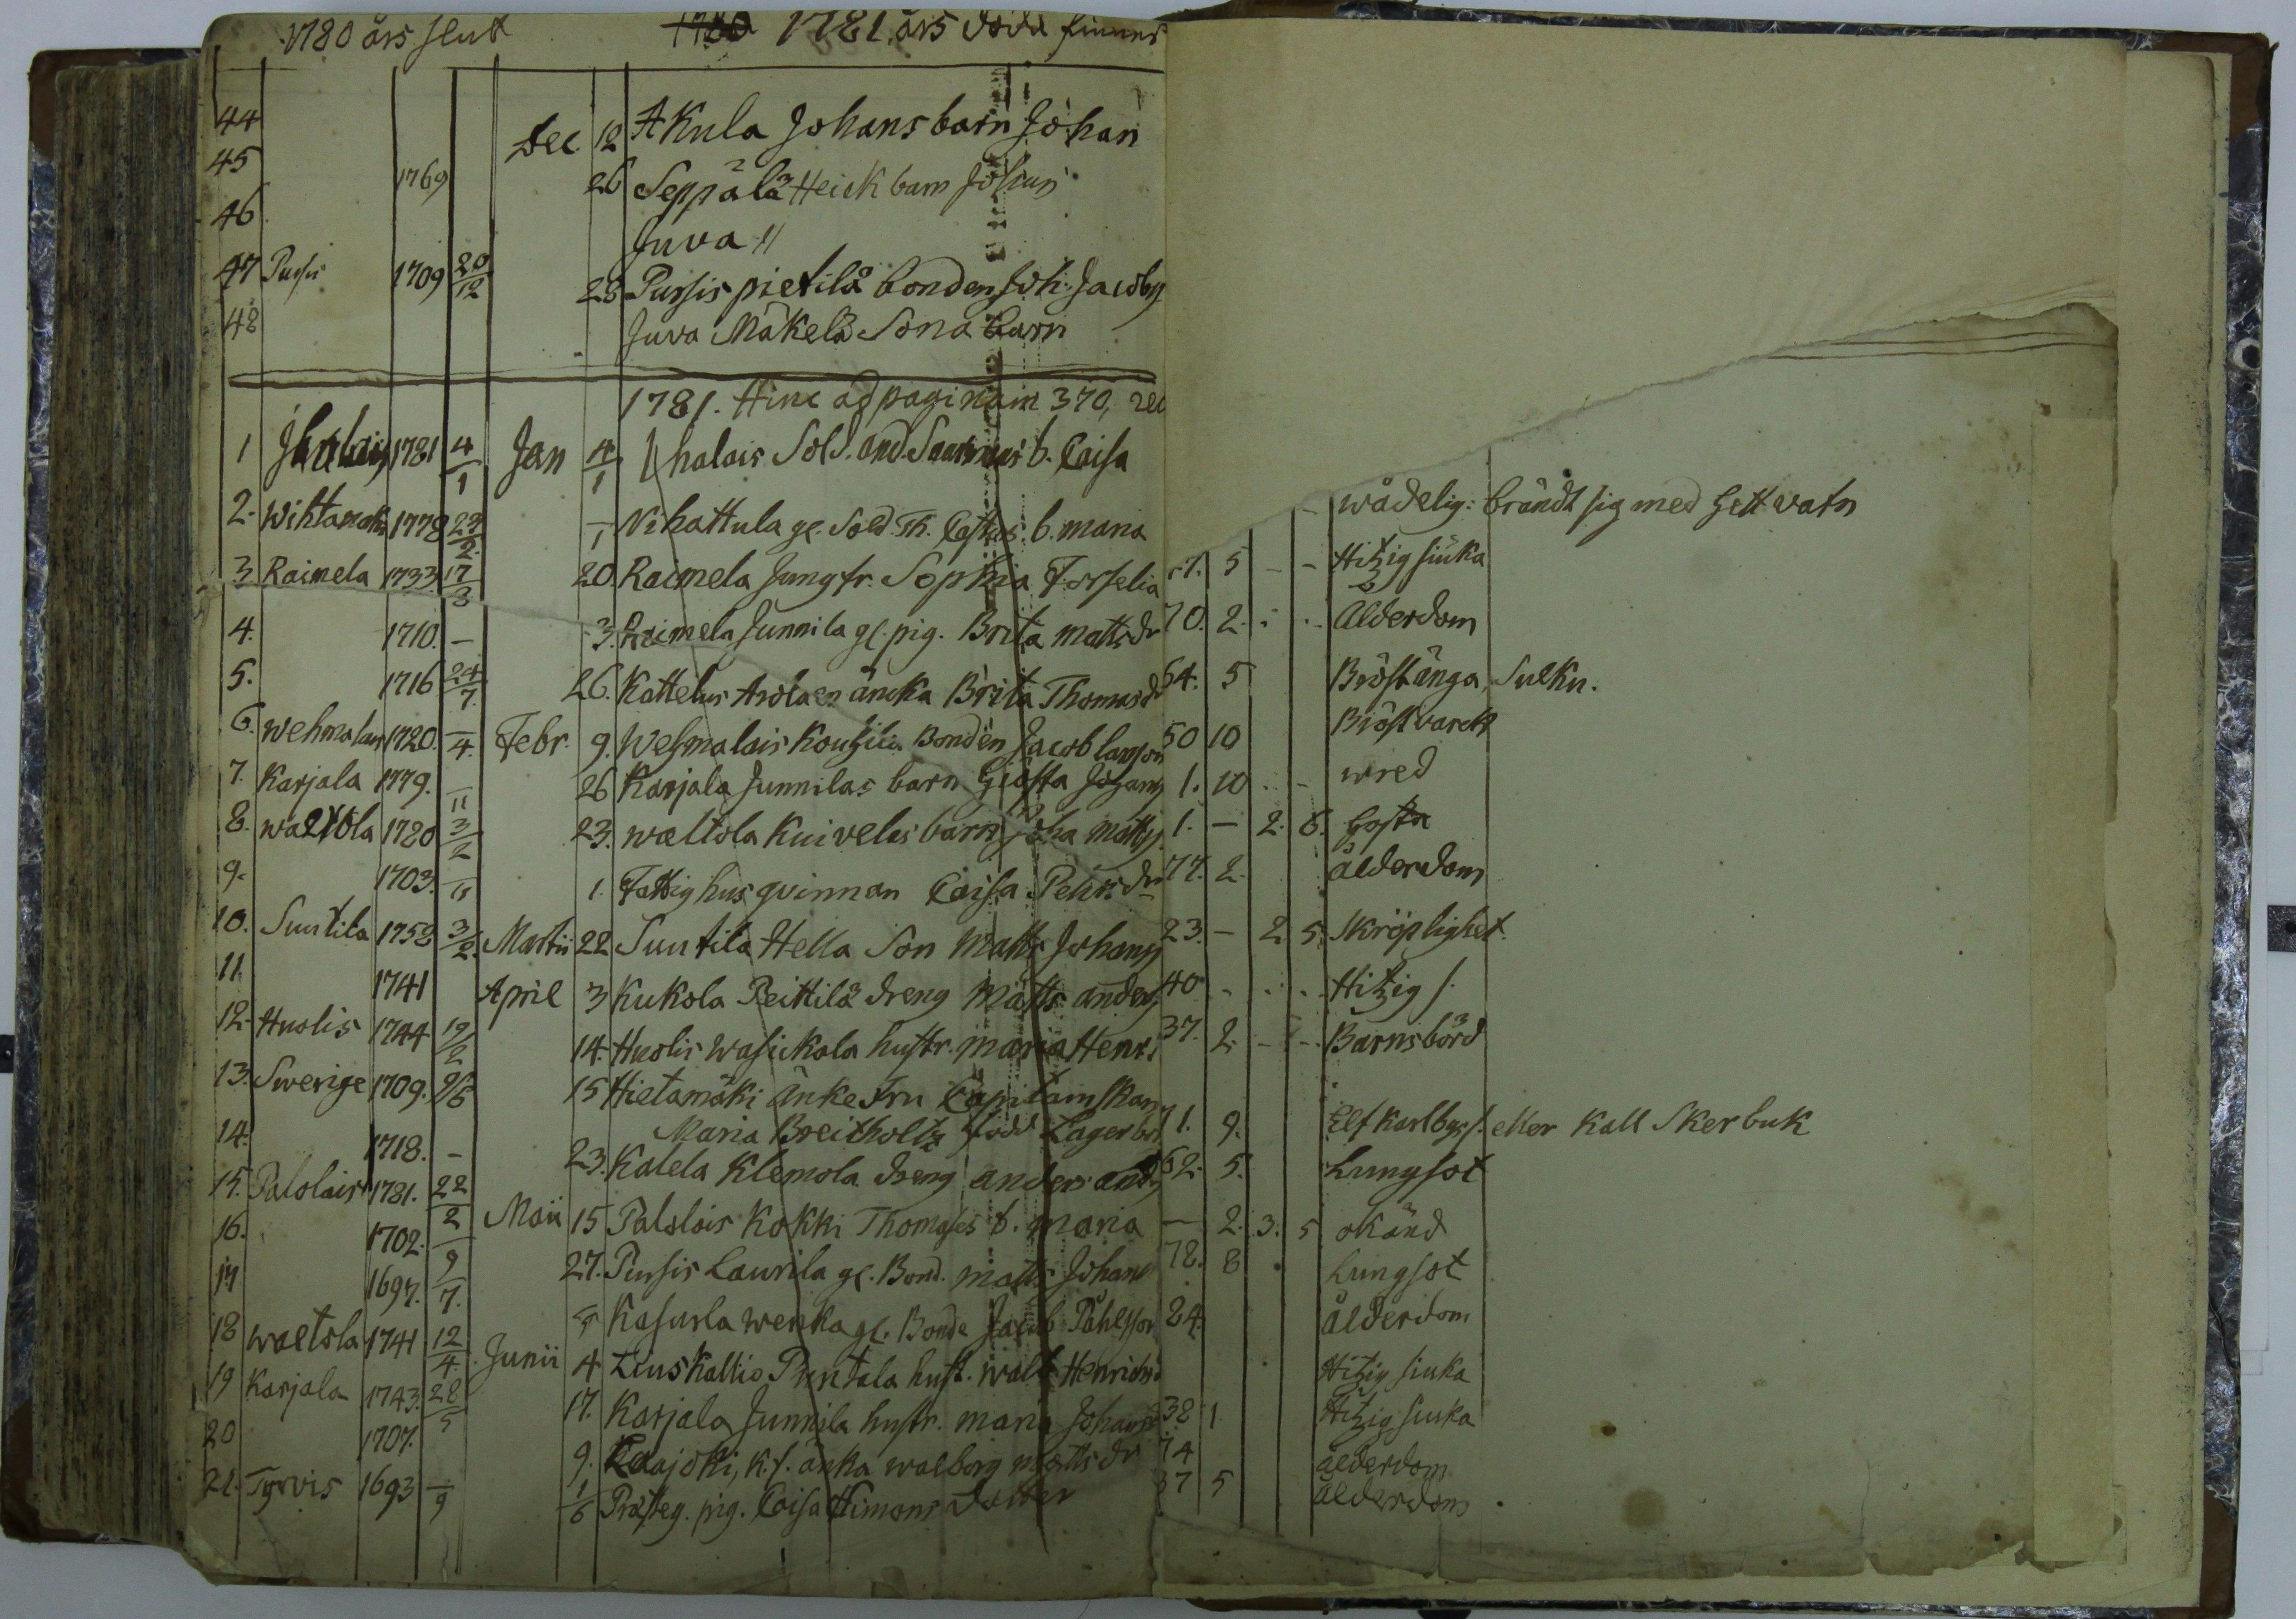 1780 års slut 1780 1781 års döda finnes
44 Dec. 12 Akula Johans barn Johan
45 1769 26 Seppälä Heick barn Johan
46. Juva "
47 Pursis 1709 20/12 28 Pursis pietilä bonden Joh. Jacobss
48 Juva Mäkelä Sona barn
1781. Hinc ad paginam 370,
1 Ihalais 1781 4/1 Jan 4/1 Ihalais Sold. And. b. Caisa
2. 1778 27/2 – Nihattula gl. Sold. Th. b. maria wådelig: brändt sig med hett vatn
3 Raimela 1733. 17/3 20. Raimela Jungfr. Sophia Forselia 5 – – Hitzig siuka
4. 1710. – 3. Raimela Junnila gl. pig. Brita mattsdr 70. 2. Alderdom
5. 1716 24/7. 26. Kattelus Arola en äncka Brita Thomasdr 64. 5 Bröstånga, Sulkn.
6. Wehmalais 1720. –/4. Febr. 9. Wehmalais Bonden Jacob larsson 60 10 Bröstvärck
7. Karjala 1779. –/11 26 Karjala Junnilas barn Giösta Johanss 1. 10 wred
8. waltola 1780 3/2 23. waltola Kuivelas barn Joha mattss. 1. – 2. 6. hosta
9. 1703. –/11 1. Fattighus qvinnan Caisa Pehrsdr 77. 2. ålderdom
10. Suutila 1758 3/2. Martii 22 Suutila Hella Son Matts Johanss 23. – 2. 5. Skröplighet.
11. 1741 April 3 Kukola Peittilä dreng Matts anderss 40 Hitzig s.
12. Huolis 1744 19/2 14. Huolis wasickala hustr. maria Henr. 37. 2 – – Barnsbörd
13. Swerige 1709. 9/6 15 Hietamäki Änke Fru
Maria Breitholtz född Lager 71. 9. Elfkarlbys s. eller kall Skerbuk
14. 1718. – 23. Kalela Klemola dreng anders and. 62. 5. Lungsot
15. Palolais 1781. 22/2 Maii 15 Palolais Kokki Thomases b. maria – 2. 3. 5 okänd
16. 1702. –/9 27. Pursis Laurila gl. Bond. matts Johans 78. 8 Lungsot
17 1697. 7. 5 Kasurla wenka gl. Bonde Jacob Påhlsson 84. ålderdom
18 waltola 1741 12/4. Junii 4 Linskallio Prentala hust. walb Henricsd. Hitzig siuka
19 Karjala 1743. 28/5 17. Karjala Junnila hustr. maria Johansd 38 1. Hitzig siuka
20 1707. 9. Raajoki, k.s. änka walborg mattsdr 74 ålderdom
21. Tyrvis 1693 –/9 1/6 Prästeg. pig. Caisa Simons dotter 87 5 ålderdom.